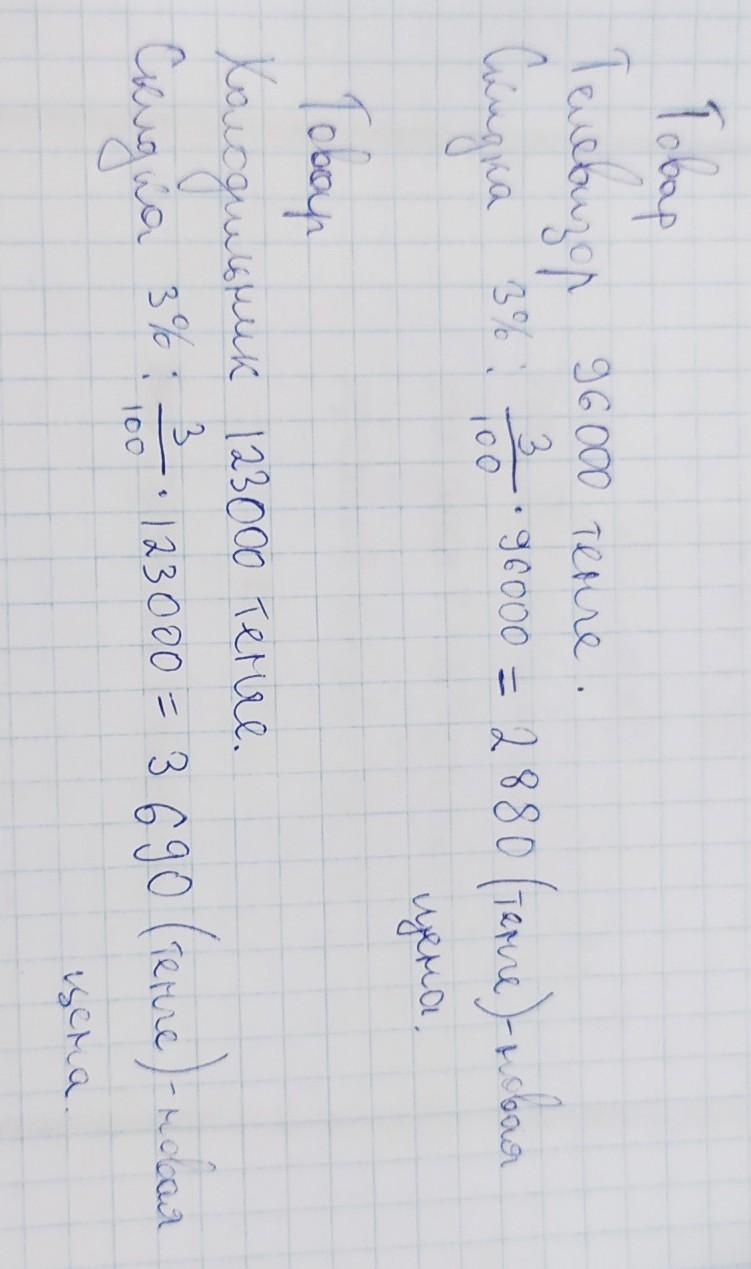 Товар
Телевизор 96000 тенге.
Скидка 3% : 3/100 · 96000 = 2880 (тенге) - новая
цена.
Товар
Холодильник 123000 тенге.
Скидка 3% : 3/100 · 123000 = 3690 (тенге) - новая
цена.